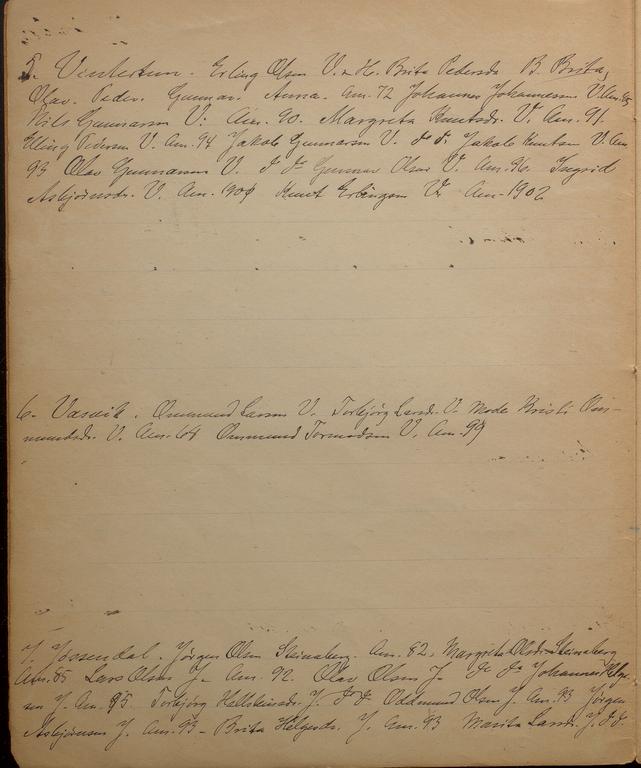 5. Vintertun. Erling Olsen V. & H. Brita Pedersda B. Brita,
Olav. Peder. Gunnar. Anna. Am. 72 Johannes Johannessen V. Am. 85
Nils Gunnarsen V. Am. 90. Margreta Knutsdr. V. Am. 91.
Elling Pedersen V. Am. 94 Jakob Gunnarsen V. d d: Jakob Knutsen V. Am
93 Olav Gunnarsen V. d d Gunnar Olsen V. Am. 96. Ingrid
Asbjørnsdr. V. Am. Knut Erlingsen V. Am. 1902
6. Vasvik. Ommund Larsen V. Torbjørg Larsdr. V. Mode Kristi Om-
mundsdr. V. Am. 64 Ommund Tormodsen V. Am. 99
7. Jøssendal. Jørgen Olsen Steinsberg. Am. 82. Margrita Olsdr. Steinsberg
Am. 85 Lars Olsen J. Am. 92. Olav Olsen J. do do Johannes Helge-
sen J. Am. 93 Torbjørg Hallsteinsdr. J. d d Oddmund Olsen J. Am. 93 Jørgen
Asbjørnsen J. Am. 93 - Brita Helgesdr. J. Am. 93 Marita Larsdr. J. d d.